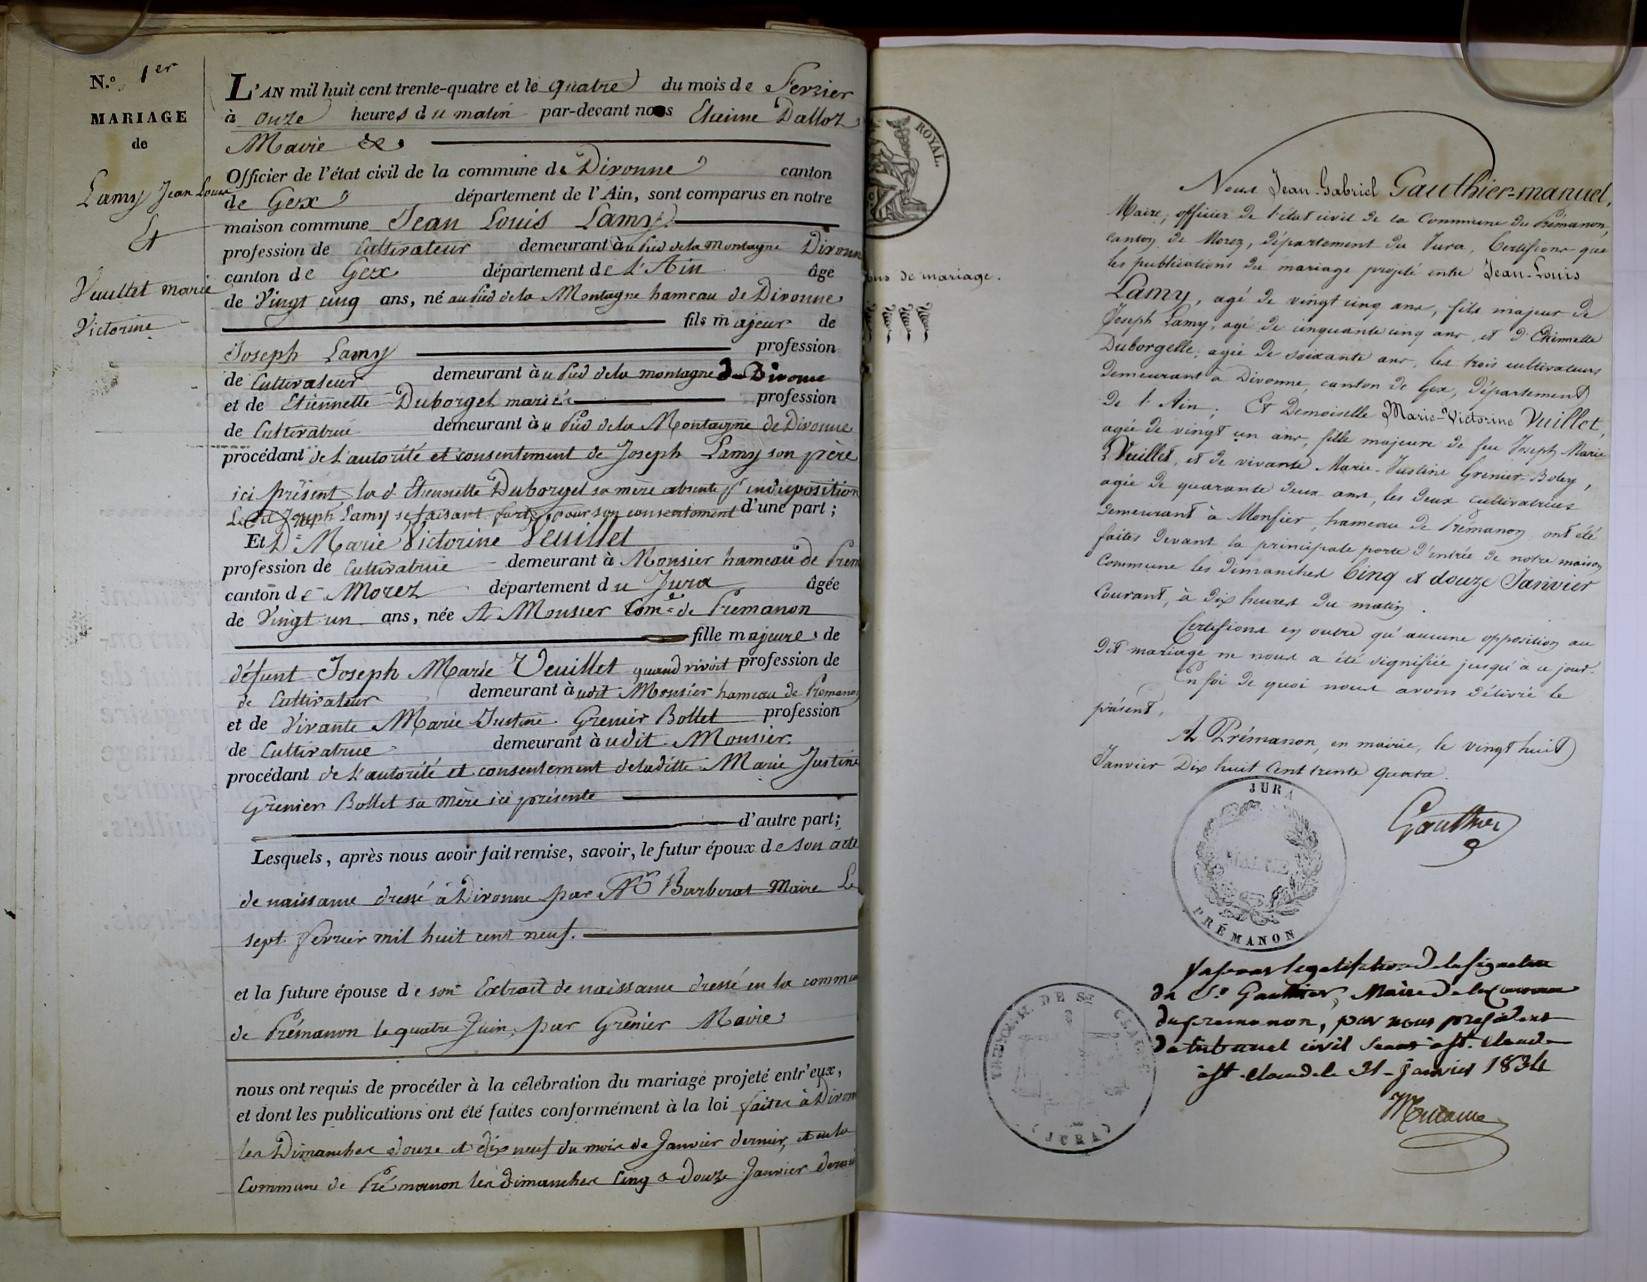 N.º 1er
MARIAGE
de
Lamy Jean Louis
Et
Vuillet marie
Victorine
L'AN mil huit cent trente-quatre et le quatre du mois de Fevrier
à onze heures du matin par-devant nous Etienne Dalloz
Maire
Officier de l'état civil de la commune de Divonne canton
de Gex département de l'Ain, sont comparus en notre
maison commune Jean Louis Lamy
profession de Cultivateur demeurant àu Pied de la montagne Divonne
canton de Gex département de L'Ain âge
de Vingt cinq ans, né au Pied de la Montagne hameau de Divonne
fils majeur de
Joseph Lamy profession
de Cultivateur demeurant àu Pied de la montagne de Divonne
et de Etiennette Duborgel mariés profession
de Cultivatrice demeurant àu Pied de la Montagne de Divonne
procédant de L'autorité et consentement de Joseph Lamy son père
ici présent, la d. Etiennette Duborgel sa mère absente pr indisposition
Le dit Joseph Lamy se faisant fort pour son consentement d'une part ;
Et De Marie Victorine Veuillet
profession de Cultivatrice demeurant à Monsier hameau de Prem
canton de Morez département du Jura âgée
de Vingt un ans, née A Mousier Come de Premanon
fille majeure de
défunt Joseph Marie Veuillet quand vivoit profession de
de Cultivateur demeurant àudit Mousier hameau de Premanon
et de Vivante Marie Justine Grenier Bollet profession
de Cultivatrice demeurant àudit Mousier.
procédant de L'autorité et consentement de laditte Marie Justine
Grenier Bollet sa mère ici présente
d'autre part;
Lesquels, après nous avoir fait remise, savoir, le futur époux de son acte
de naissance dressé à Divonne par Mr Barberat Maire Le
sept fevrier mil huit cent neuf.
et la future épouse de son Extrait de naissance dressé en la commune
de Prémanon le quatre Juin, par Grenier Maire
nous ont requis de procéder à la célébration du mariage projeté entr'eux,
et dont les publications ont été faites conformément à la loi faites à Divonne
les Dimanches douze et dix neuf du mois de Janvier dernier, et en la
Commune de Prémanon les dimanches Cinq & Douze Janvier dernier
ROYAL.
ons de mariage.
Nous Jean-Gabriel Gauthier-manuel,
Maire, officier de l'état civil de la Commune de Prémanon,
canton de Morez, département du Jura, Certifions que
les publications du mariage projeté entre Jean-Louis
Lamy, agé de vingt cinq ans, fils majeur de
Joseph Lamy, agé de cinquante cinq ans, et d'Etiennette
Duborgelle, agée de soixante ans, les trois cultivateurs
demeurant à Divonne, canton de Gex, département
de l'Ain; Et Demoiselle Marie-Victorine Vuillet,
agée de vingt un ans, fille majeure de feu Joseph Marie
Vuillet, et de vivante Marie-Justine Grenier-Boley,
agée de quarante deux ans, les deux cultivatrices
demeurant à Monsier, hameau de Prémanon, ont été
faites devant la principale porte d'entrée de notre maison
Commune les dimanches Cinq et douze Janvier
Courant, à dix heures du matin.
Certifions en outre qu'aucune opposition au
Dit mariage ne nous a été signifiée jusqu'à ce jour.
En foi de quoi nous avons délivré le
présent.
A Prémanon, en mairie, le vingt huit
Janvier Dix huit Cent trente quatre.
Gauthier
JURA
MAIRIE
PRÉMANON
Vu pour légalisation de la signature
du Sr Gauthier, Maire de la Commune
de premanon, par nous président
du tribunal civil séant à St. Claude
à St. Claude le 31 Janvier 1834
TRIBUNAL DE St CLAUDE
(JURA)